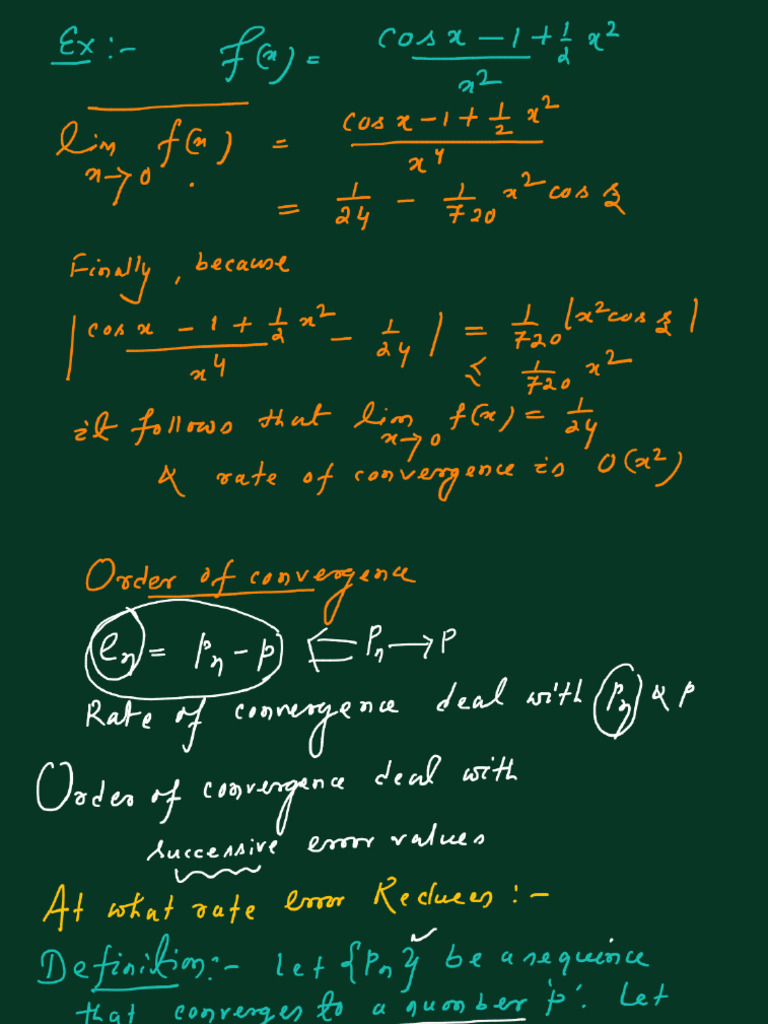 Ex :- f(x) = cos x - 1 + 1/2 x² / x²
lim x→0 f(x) = cos x - 1 + 1/2 x² / x⁴
= 1/24 - 1/720 x² cos ξ
Finally, because
| cos x - 1 + 1/2 x² / x⁴ - 1/24 | = 1/720 |x² cos ξ|
≤ 1/720 x²
it follows that lim x→0 f(x) = 1/24
& rate of convergence is O(x²)
Order of convergence
eₙ = pₙ - p ⇐ pₙ → p
Rate of convergence deal with pₙ & p
Order of convergence deal with
successive error values
At what rate error Reduces :-
Definition :- Let {pₙ} be a sequince
that converges to a number 'p'. Let